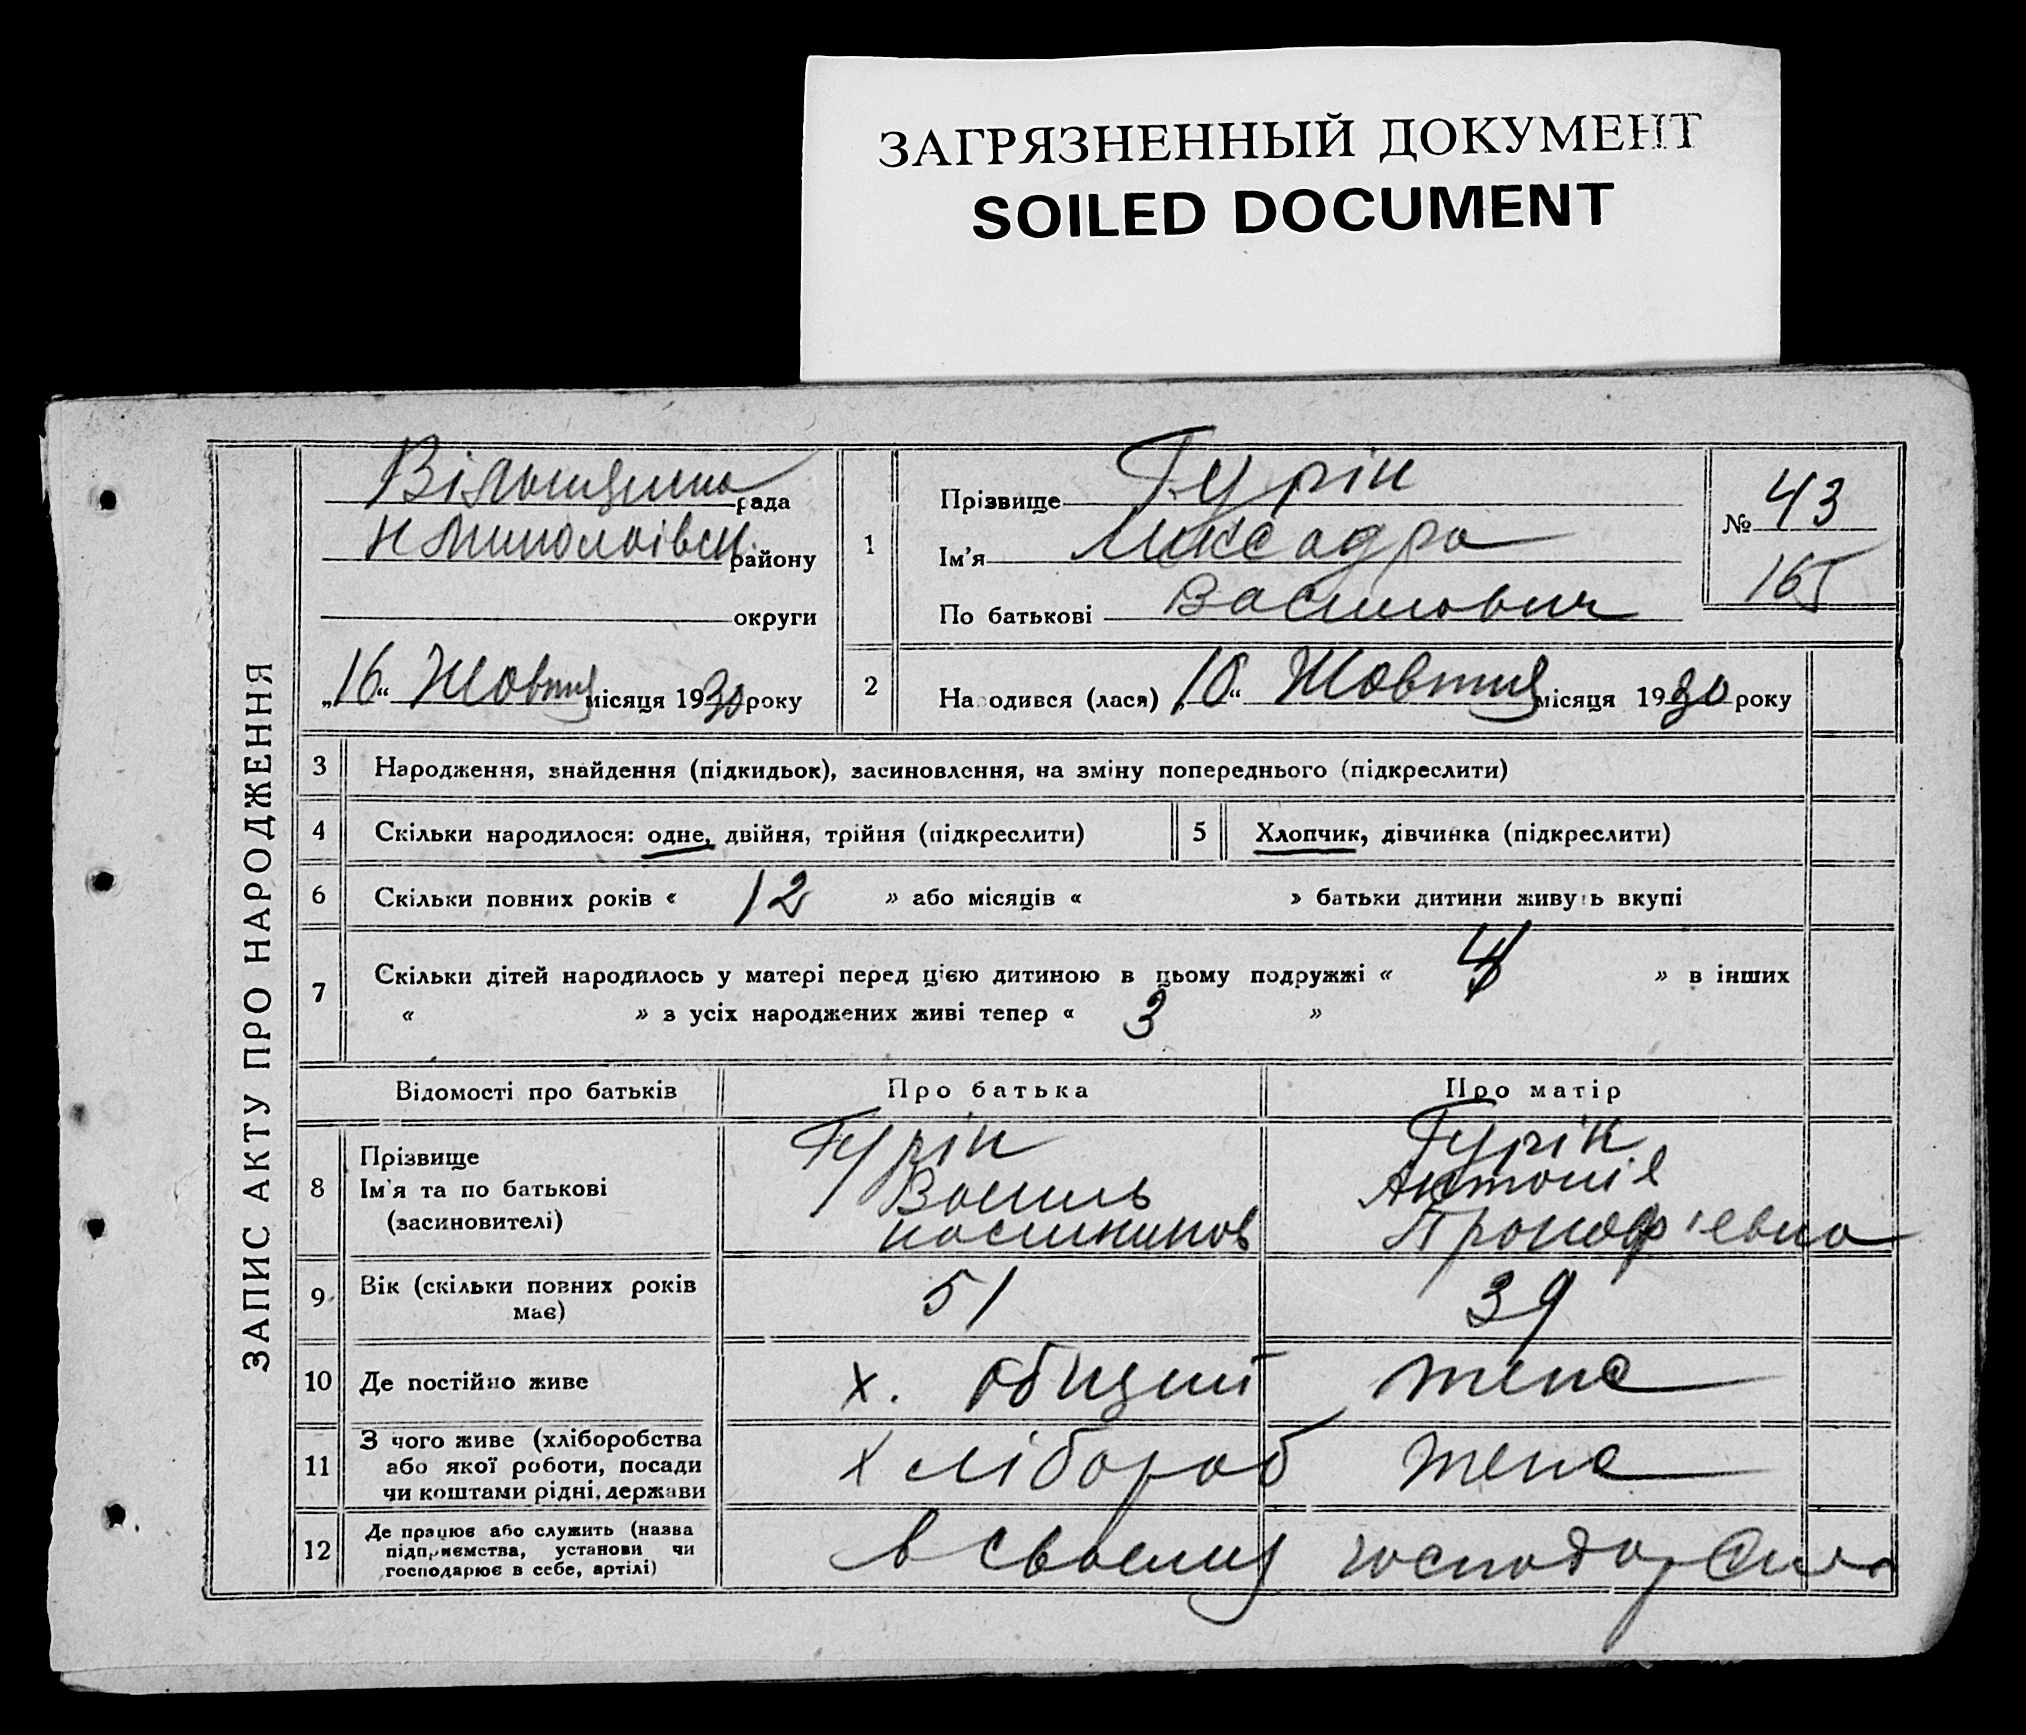 ЗАГРЯЗНЕННЫЙ ДОКУМЕНТ
SOILED DOCUMENT
ЗАПИС АКТУ ПРО НАРОДЖЕННЯ
рада
району
округи
„16“ Жовтня місяця 1930 року
1
Прізвище Гурін
Ім'я
По батькові Василович
№ 43
165
2
Народився (лася) „10“ Жовтня місяця 1930 року
3 Народження, знайдення (підкидьок), засиновлення, на зміну попереднього (підкреслити)
4 Скільки народилося: одне, двійня, трійня (підкреслити)
5 Хлопчик, дівчинка (підкреслити)
6 Скільки повних років « 12 » або місяців « » батьки дитини живуть вкупі
7 Скільки дітей народилось у матері перед цією дитиною в цьому подружжі « 4 » в інших
« » з усіх народжених живі тепер « 3 »
Відомості про батьків Про батька Про матір
8 Прізвище Гурін Гурін
Ім'я та по батькові Василь Антонія
(засиновителі) Прокофієвна
9 Вік (скільки повних років має) 51 39
10 Де постійно живе х. теж
11 З чого живе (хліборобства
або якої роботи, посади
чи коштами рідні, держави
хлібороб теж
12 Де працює або служить (назва
підприємства, установи чи
господарює в себе, артілі)
в своему